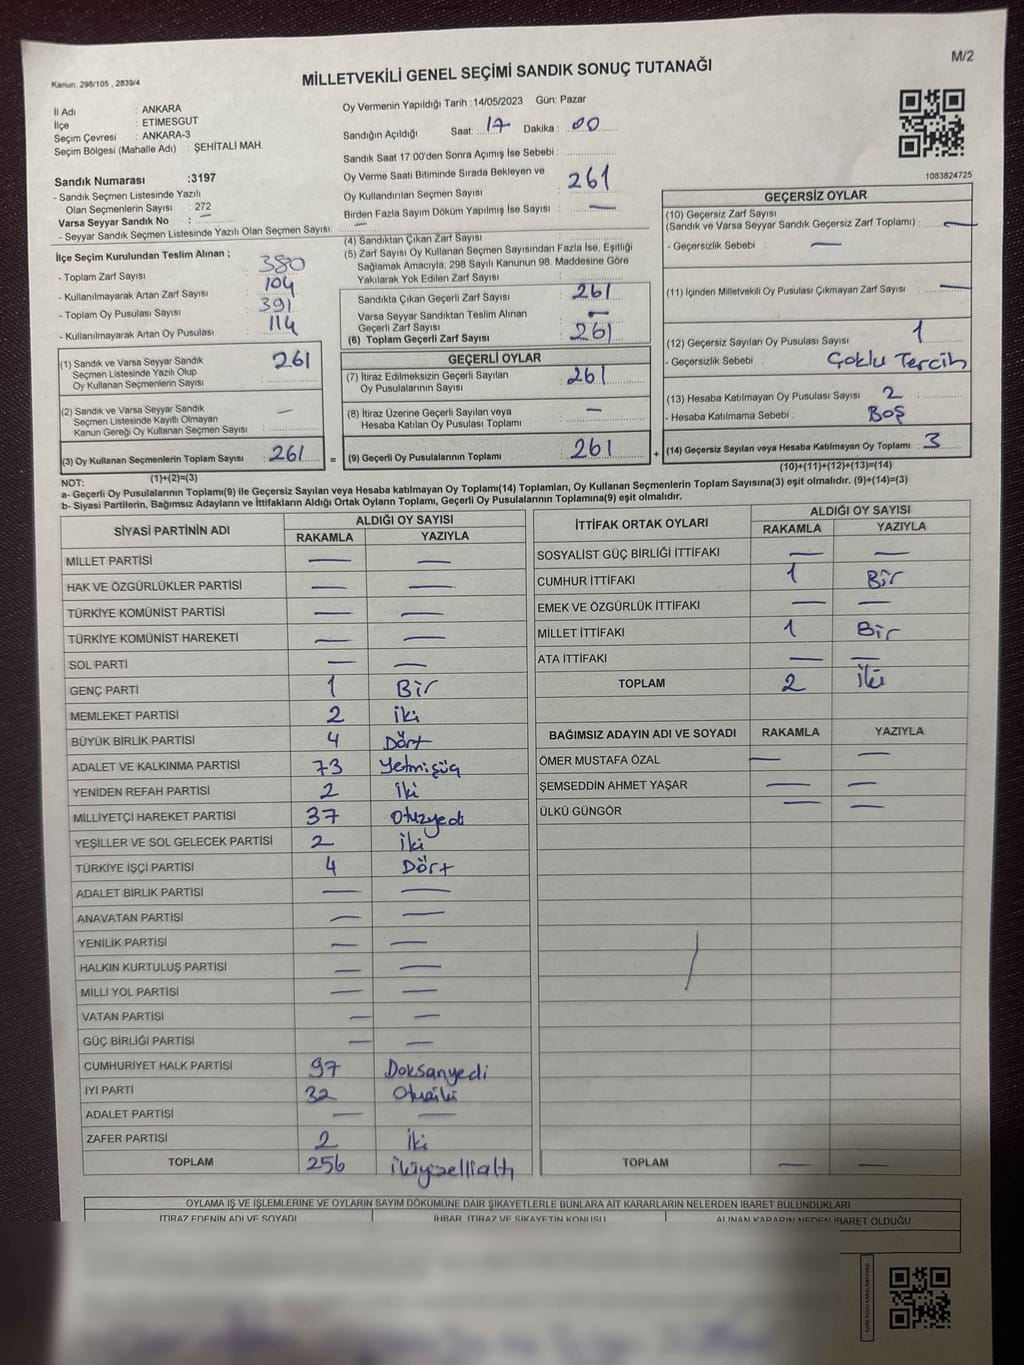 Kanun: 298/105 , 2839/4
MİLLETVEKİLİ GENEL SEÇİMİ SANDIK SONUÇ TUTANAĞI
M/2
İl Adı : ANKARA
İlçe : ETİMESGUT
Seçim Çevresi : ANKARA-3
Seçim Bölgesi (Mahalle Adı) : ŞEHİTALİ MAH.
Oy Vermenin Yapıldığı Tarih : 14/05/2023 Gün: Pazar
Sandığın Açıldığı Saat: 17 Dakika : 00
Sandık Saat 17:00'den Sonra Açımış İse Sebebi :
Oy Verme Saati Bitiminde Sırada Bekleyen ve
Oy Kullandırılan Seçmen Sayısı 261
Birden Fazla Sayım Döküm Yapılmış İse Sayısı : —
1083824725
Sandık Numarası :3197
- Sandık Seçmen Listesinde Yazılı
Olan Seçmenlerin Sayısı : 272
Varsa Seyyar Sandık No : —
- Seyyar Sandık Seçmen Listesinde Yazılı Olan Seçmen Sayısı: —
İlçe Seçim Kurulundan Teslim Alınan ;
- Toplam Zarf Sayısı 380
- Kullanılmayarak Artan Zarf Sayısı 104
- Toplam Oy Pusulası Sayısı 391
- Kullanılmayarak Artan Oy Pusulası 114
(1) Sandık ve Varsa Seyyar Sandık
Seçmen Listesinde Yazılı Olup
Oy Kullanan Seçmenlerin Sayısı 261
(2) Sandık ve Varsa Seyyar Sandık
Seçmen Listesinde Kayıtlı Olmayan
Kanun Gereği Oy Kullanan Seçmen Sayısı —
(3) Oy Kullanan Seçmenlerin Toplam Sayısı : 261 =
(1)+(2)=(3)
(4) Sandıktan Çıkan Zarf Sayısı
(5) Zarf Sayısı Oy Kullanan Seçmen Sayısından Fazla İse, Eşitliği
Sağlamak Amacıyla; 298 Sayılı Kanunun 98. Maddesine Göre
Yakılarak Yok Edilen Zarf Sayısı
Sandıkta Çıkan Geçerli Zarf Sayısı 261
Varsa Seyyar Sandıktan Teslim Alınan
Geçerli Zarf Sayısı —
(6) Toplam Geçerli Zarf Sayısı 261
GEÇERLİ OYLAR
(7) İtiraz Edilmeksizin Geçerli Sayılan
Oy Pusulalarının Sayısı 261
(8) İtiraz Üzerine Geçerli Sayılan veya
Hesaba Katılan Oy Pusulası Toplamı —
(9) Geçerli Oy Pusulalarının Toplamı 261 +
GEÇERSİZ OYLAR
(10) Geçersiz Zarf Sayısı
(Sandık ve Varsa Seyyar Sandık Geçersiz Zarf Toplamı) : —
- Geçersizlik Sebebi : —
(11) İçinden Milletvekili Oy Pusulası Çıkmayan Zarf Sayısı —
(12) Geçersiz Sayılan Oy Pusulası Sayısı 1
- Geçersizlik Sebebi : Çoklu Tercih
(13) Hesaba Katılmayan Oy Pusulası Sayısı 2
- Hesaba Katılmama Sebebi : Boş
(14) Geçersiz Sayılan veya Hesaba Katılmayan Oy Toplamı : 3
(10)+(11)+(12)+(13)=(14)
NOT:
a- Geçerli Oy Pusulalarının Toplamı(9) ile Geçersiz Sayılan veya Hesaba katılmayan Oy Toplamı(14) Toplamları, Oy Kullanan Seçmenlerin Toplam Sayısına(3) eşit olmalıdır. (9)+(14)=(3)
b- Siyasi Partilerin, Bağımsız Adayların ve İttifakların Aldığı Ortak Oyların Toplamı, Geçerli Oy Pusulalarının Toplamına(9) eşit olmalıdır.
SİYASİ PARTİNİN ADI ALDIĞI OY SAYISI
RAKAMLA YAZIYLA
MİLLET PARTİSİ — —
HAK VE ÖZGÜRLÜKLER PARTİSİ — —
TÜRKİYE KOMÜNİST PARTİSİ — —
TÜRKİYE KOMÜNİST HAREKETİ — —
SOL PARTİ — —
GENÇ PARTİ 1 Bir
MEMLEKET PARTİSİ 2 iki
BÜYÜK BİRLİK PARTİSİ 4 Dört
ADALET VE KALKINMA PARTİSİ 73 Yetmişüç
YENİDEN REFAH PARTİSİ 2 iki
MİLLİYETÇİ HAREKET PARTİSİ 37 otuzyedi
YEŞİLLER VE SOL GELECEK PARTİSİ 2 iki
TÜRKİYE İŞÇİ PARTİSİ 4 Dört
ADALET BİRLİK PARTİSİ — —
ANAVATAN PARTİSİ — —
YENİLİK PARTİSİ — —
HALKIN KURTULUŞ PARTİSİ — —
MİLLİ YOL PARTİSİ — —
VATAN PARTİSİ — —
GÜÇ BİRLİĞİ PARTİSİ — —
CUMHURİYET HALK PARTİSİ 97 Doksanyedi
İYİ PARTİ 32 Otuziki
ADALET PARTİSİ — —
ZAFER PARTİSİ 2 iki
TOPLAM 256 ikiyüzellialtı
İTTİFAK ORTAK OYLARI ALDIĞI OY SAYISI
RAKAMLA YAZIYLA
SOSYALİST GÜÇ BİRLİĞİ İTTİFAKI — —
CUMHUR İTTİFAKI 1 Bir
EMEK VE ÖZGÜRLÜK İTTİFAKI — —
MİLLET İTTİFAKI 1 Bir
ATA İTTİFAKI — —
TOPLAM 2 iki
BAĞIMSIZ ADAYIN ADI VE SOYADI RAKAMLA YAZIYLA
ÖMER MUSTAFA ÖZAL — —
ŞEMSEDDİN AHMET YAŞAR — —
ÜLKÜ GÜNGÖR — —
TOPLAM — —
OYLAMA İŞ VE İŞLEMLERİNE VE OYLARIN SAYIM DÖKÜMÜNE DAİR ŞİKAYETLERLE BUNLARA AİT KARARLARIN NELERDEN İBARET BULUNDUKLARI
İTİRAZ EDENİN ADI VE SOYADI İHBAR, İTİRAZ VE ŞİKAYETİN KONUSU ALINAN KARARIN NEDEN İBARET OLDUĞU